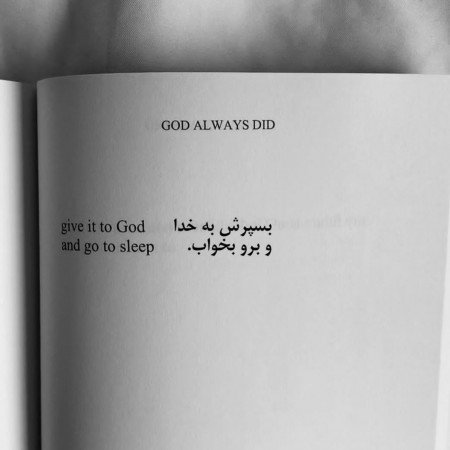 GOD ALWAYS DID
give it to God بسپرش به خدا
and go to sleep و برو بخواب.